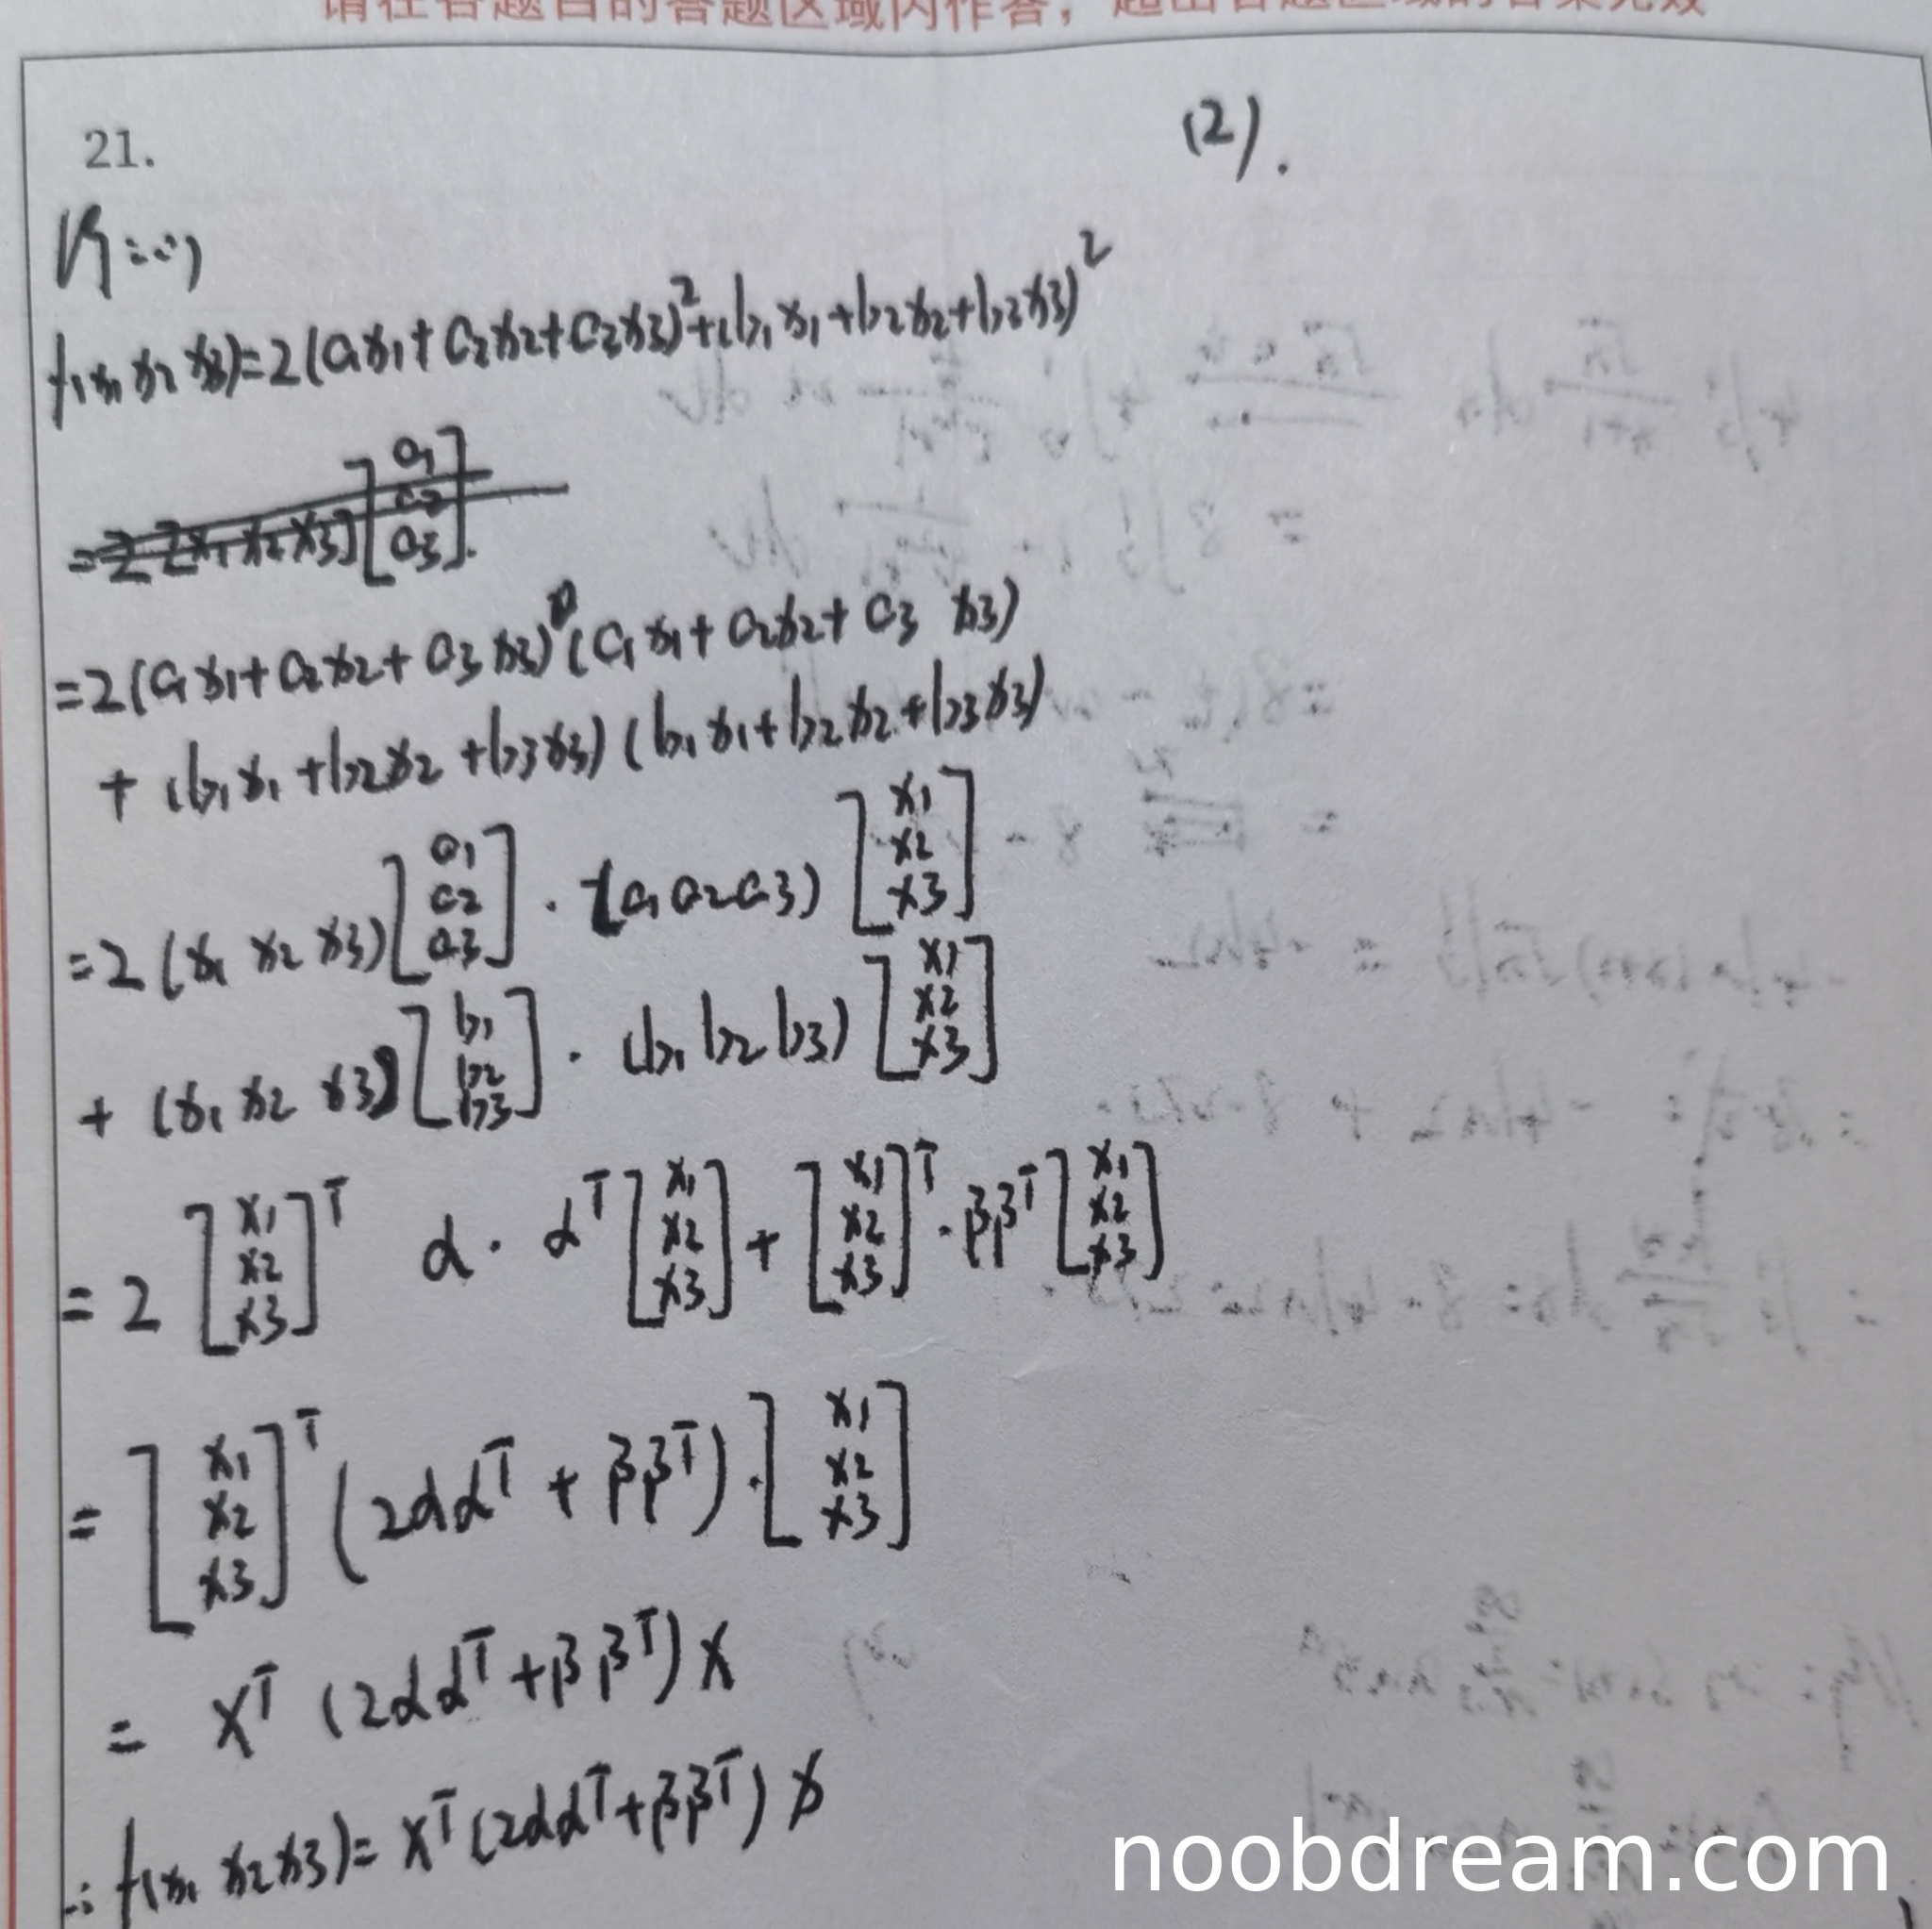 请在各题目的答题区域内作答，超出答题区域的答案无效
21.
(2).
(1)
f(x1 x2 x3)=2(a1x1+a2x2+a3x3)²+(b1x1+b2x2+b3x3)²
=2(a1x1+a2x2+a3x3)(a1x1+a2x2+a3 x3)
+(b1x1+b2x2+b3x3)(b1x1+b2x2+b3x3)
=2(x1 x2 x3)[a1 a2 a3]·(a1 a2 a3)[x1 x2 x3]
+(x1 x2 x3)[b1 b2 b3]·(b1 b2 b3)[x1 x2 x3]
=2[x1 x2 x3]ᵀ α·αᵀ[x1 x2 x3]+[x1 x2 x3]ᵀ·ββᵀ[x1 x2 x3]
=[x1 x2 x3]ᵀ(2ααᵀ+ββᵀ)·[x1 x2 x3]
= xᵀ(2ααᵀ+ββᵀ)x
∴ f(x1 x2 x3)= xᵀ(2ααᵀ+ββᵀ)x
noobdream.com